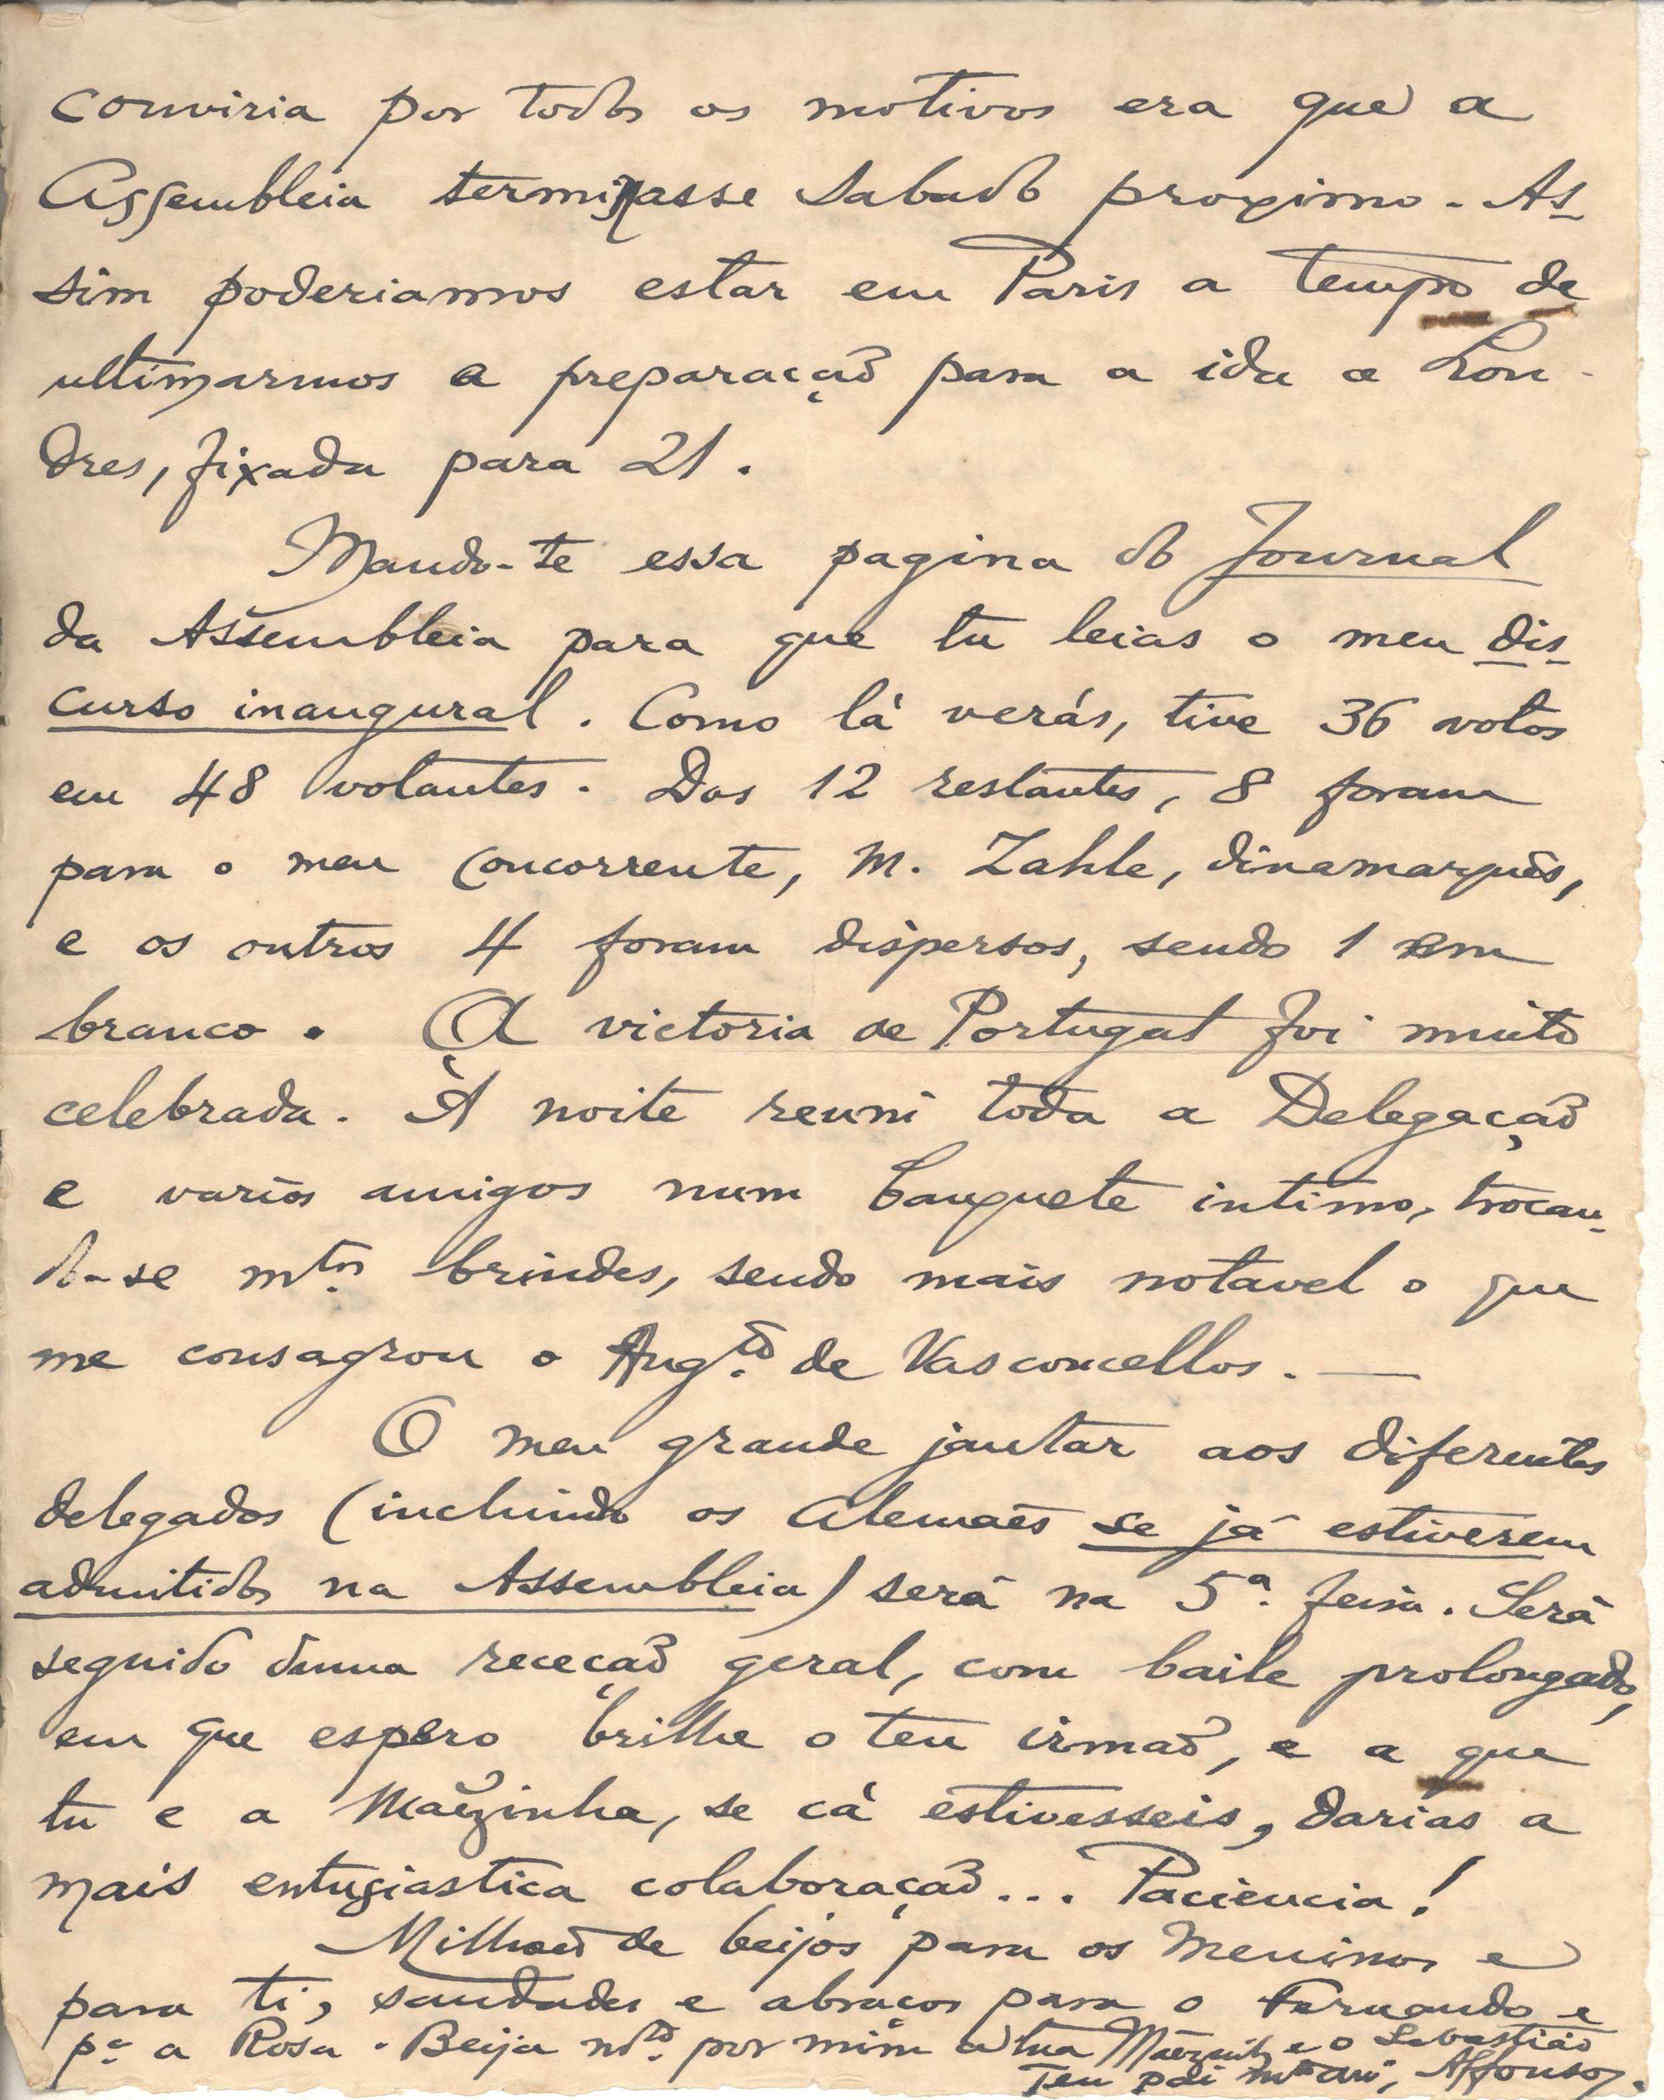 conviria por todos os motivos era que a
Assembleia terminasse sabado proximo. As-
sim poderiamos estar em Paris a tempo de
ultimarmos a preparação para a ida a Lon-
dres, fixada para 21.
Mando-te essa pagina do Journal
da Assembleia para que tu leias o meu dis-
curso inaugural. Como lá verás, tive 36 votos
em 48 votantes. Dos 12 restantes, 8 foram
para o meu concorrente, M. Zahle, dinamarquês,
e os outros 4 foram dispersos, sendo 1 em
branco. A victoria de Portugal foi muito
celebrada. À noite reuni toda a Delegação
e varios amigos num banquete intimo, trocan-
do-se mtos. brindes, sendo mais notavel o que
me consagrou o Augto. de Vasconcellos. —
O meu grande jantar aos diferentes
delegados (incluindo os alemães se já estiverem
admitidos na Assembleia) será na 5ª. feira. Será
seguido duma receção geral, com baile prolongado,
em que espero brilhe o teu irmão, e a que
tu e a Mãezinha, se cá estivesseis, darias a
mais entusiastica colaboração... Paciencia!
Milhões de beijos para os Meninos e
para ti, saudades e abraços para o Fernando e
pª a Rosa. Beija mto. por mim a tua Mãezinha e o Sebastião
Teu pai mto ami, Affonso.